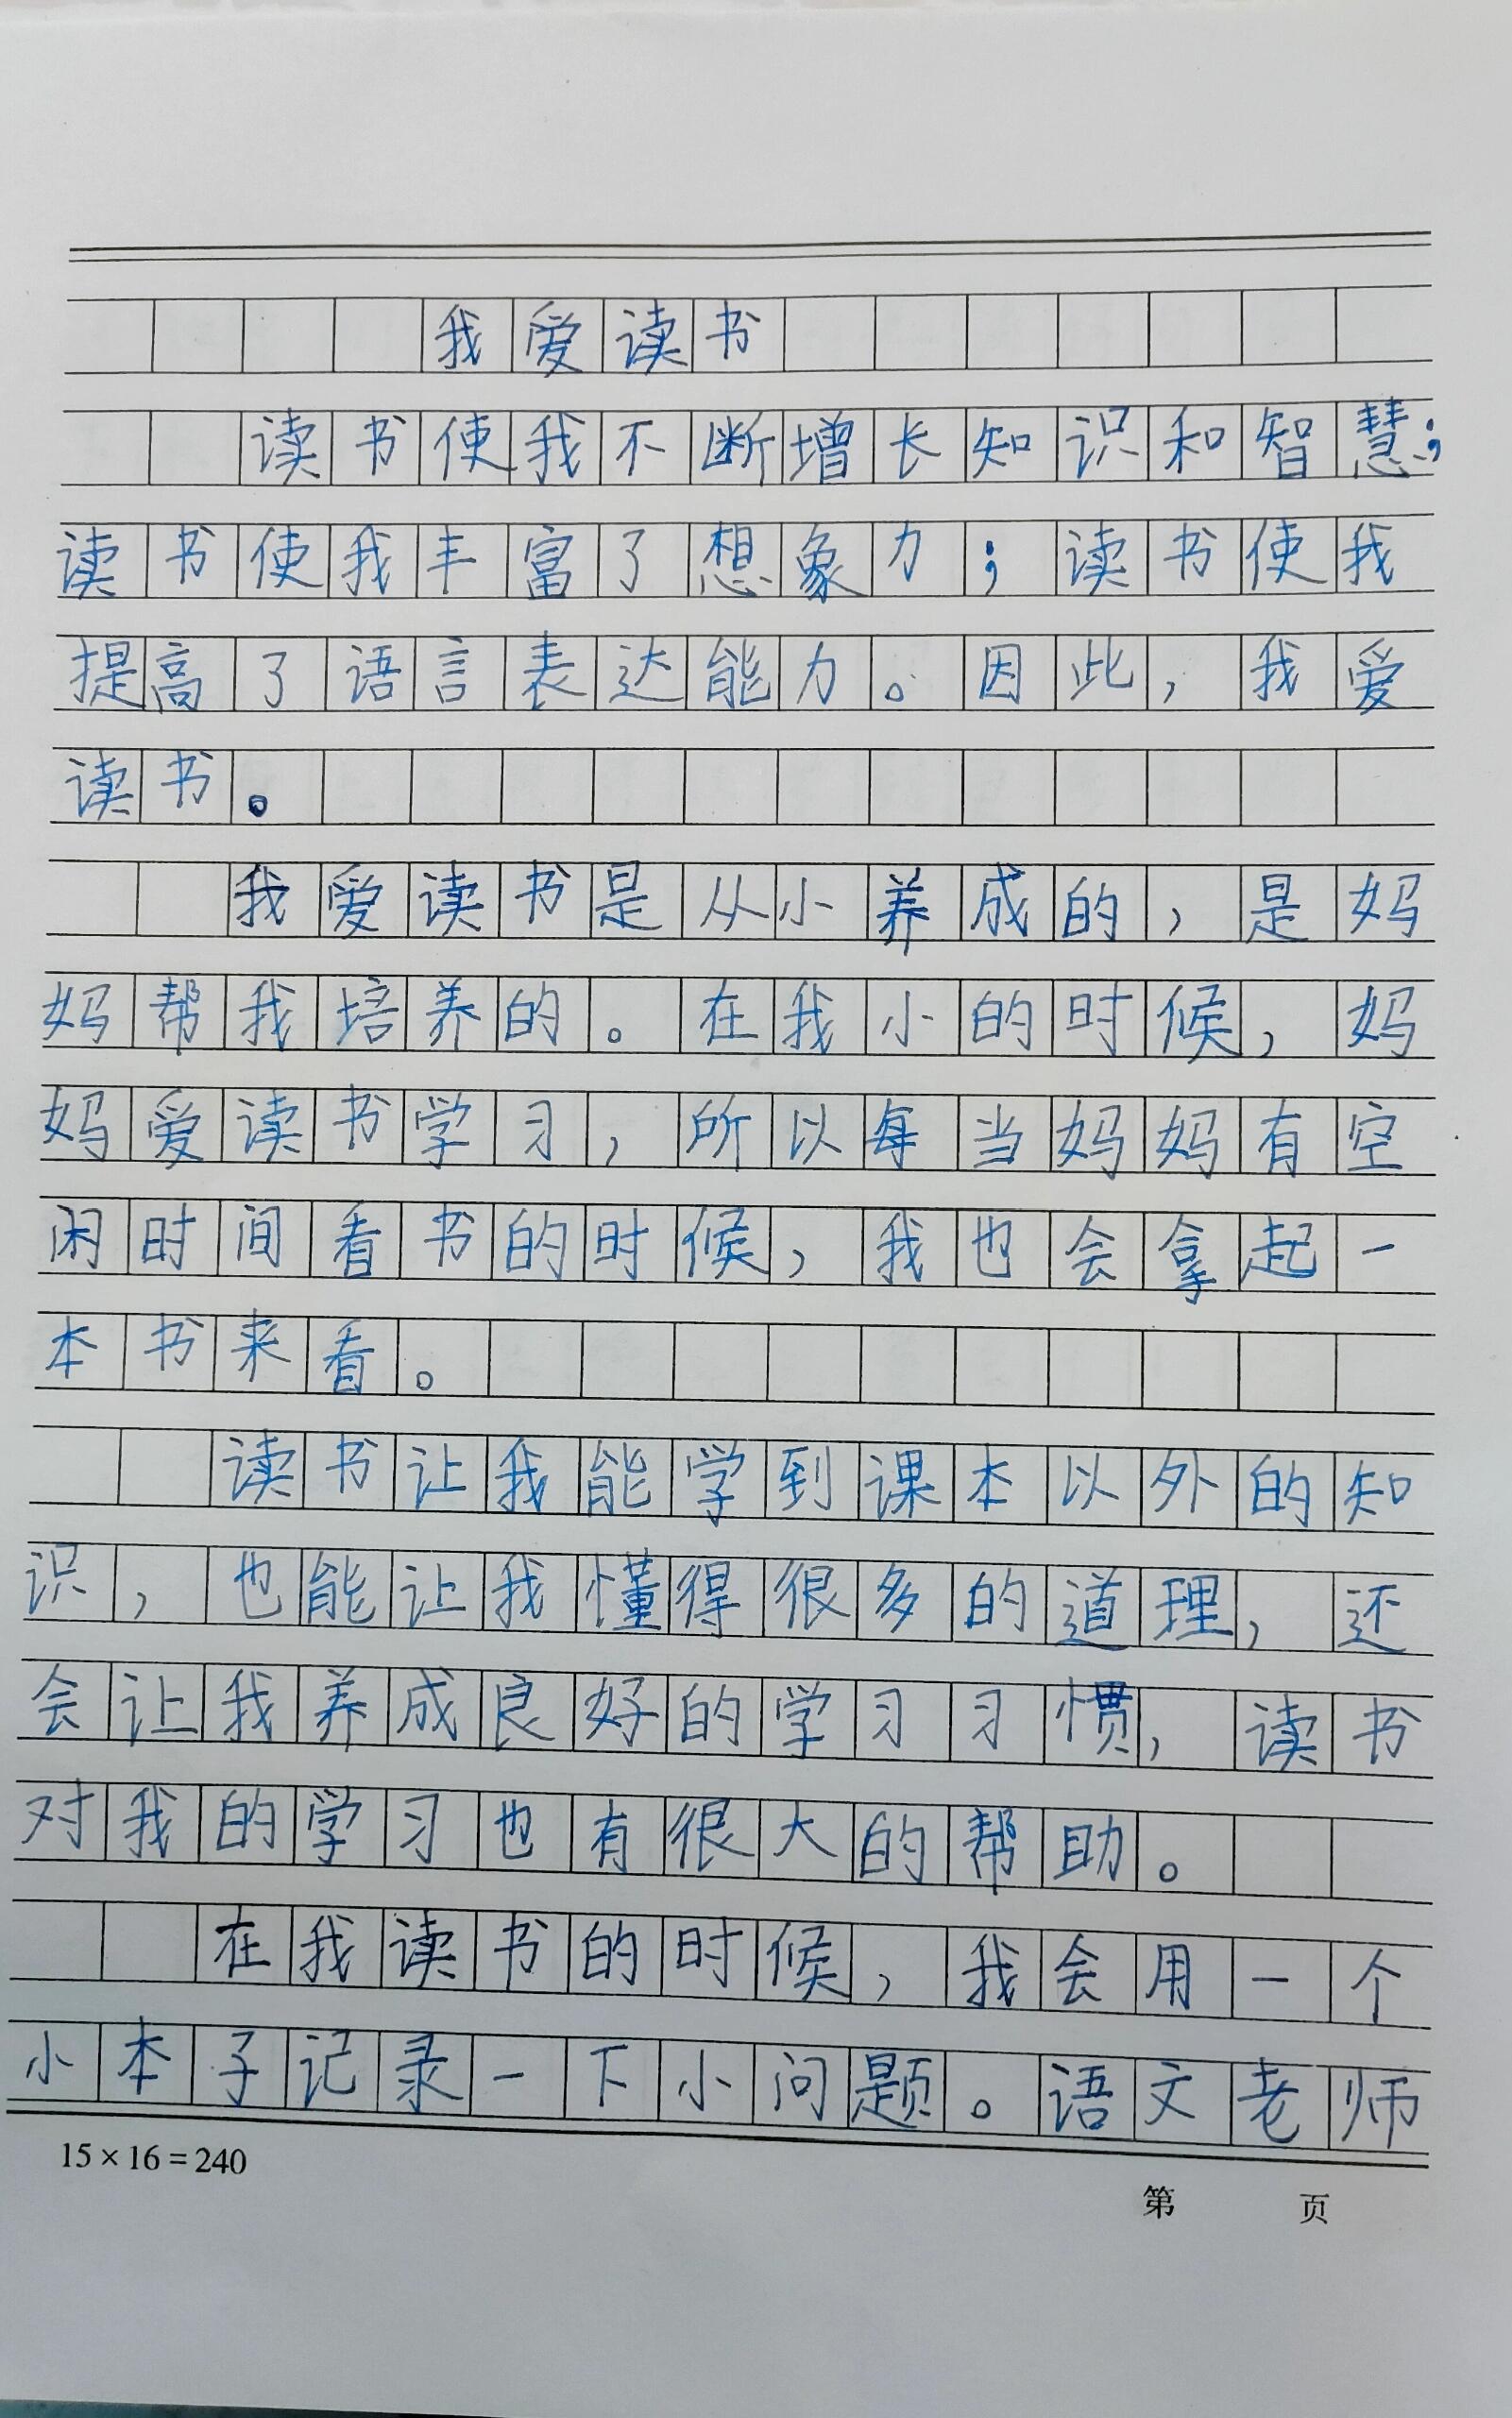 我爱读书
读书使我不断增长知识和智慧；
读书使我丰富了想象力；读书使我
提高了语言表达能力。因此，我爱
读书。
我爱读书是从小养成的，是妈
妈帮我培养的。在我小的时候，妈
妈爱读书学习，所以每当妈妈有空
闲时间看书的时候，我也会拿起一
本书来看。
读书让我能学到课本以外的知
识，也能让我懂得很多的道理，还
会让我养成良好的学习习惯，读书
对我的学习也有很大的帮助。
在我读书的时候，我会用一个
小本子记录一下小问题。语文老师
15×16=240
第 页